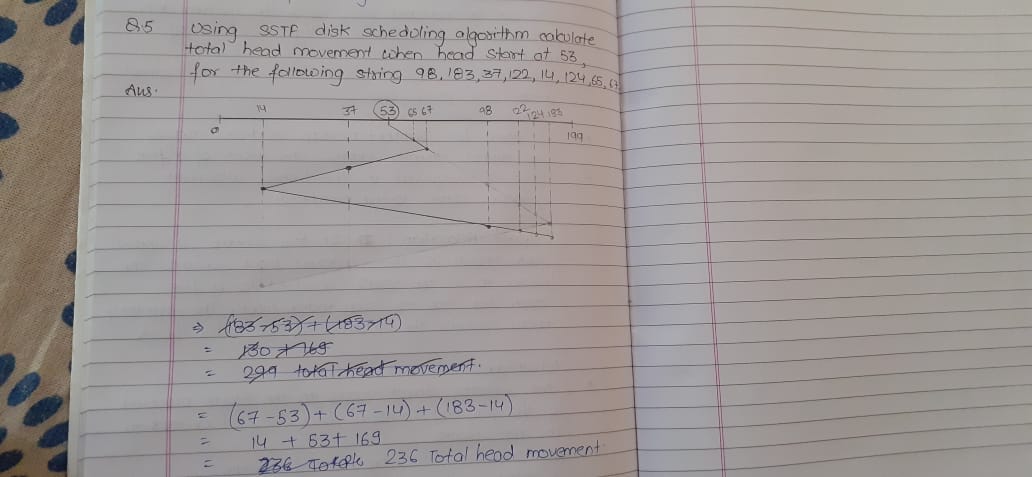 Q.5 Using SSTF disk scheduling algorithm calculate
total head movement when head start at 53,
for the following string 98, 183, 37, 122, 14, 124, 65, 67
Aus.
14 37 53 65 67 98 122 124 183
0 199
⇒ (183-53)+(183-14)
= 130 + 169
= 299 total head movement.
= (67-53)+(67-14)+(183-14)
= 14 + 53 + 169
= 236 236 Total head movement